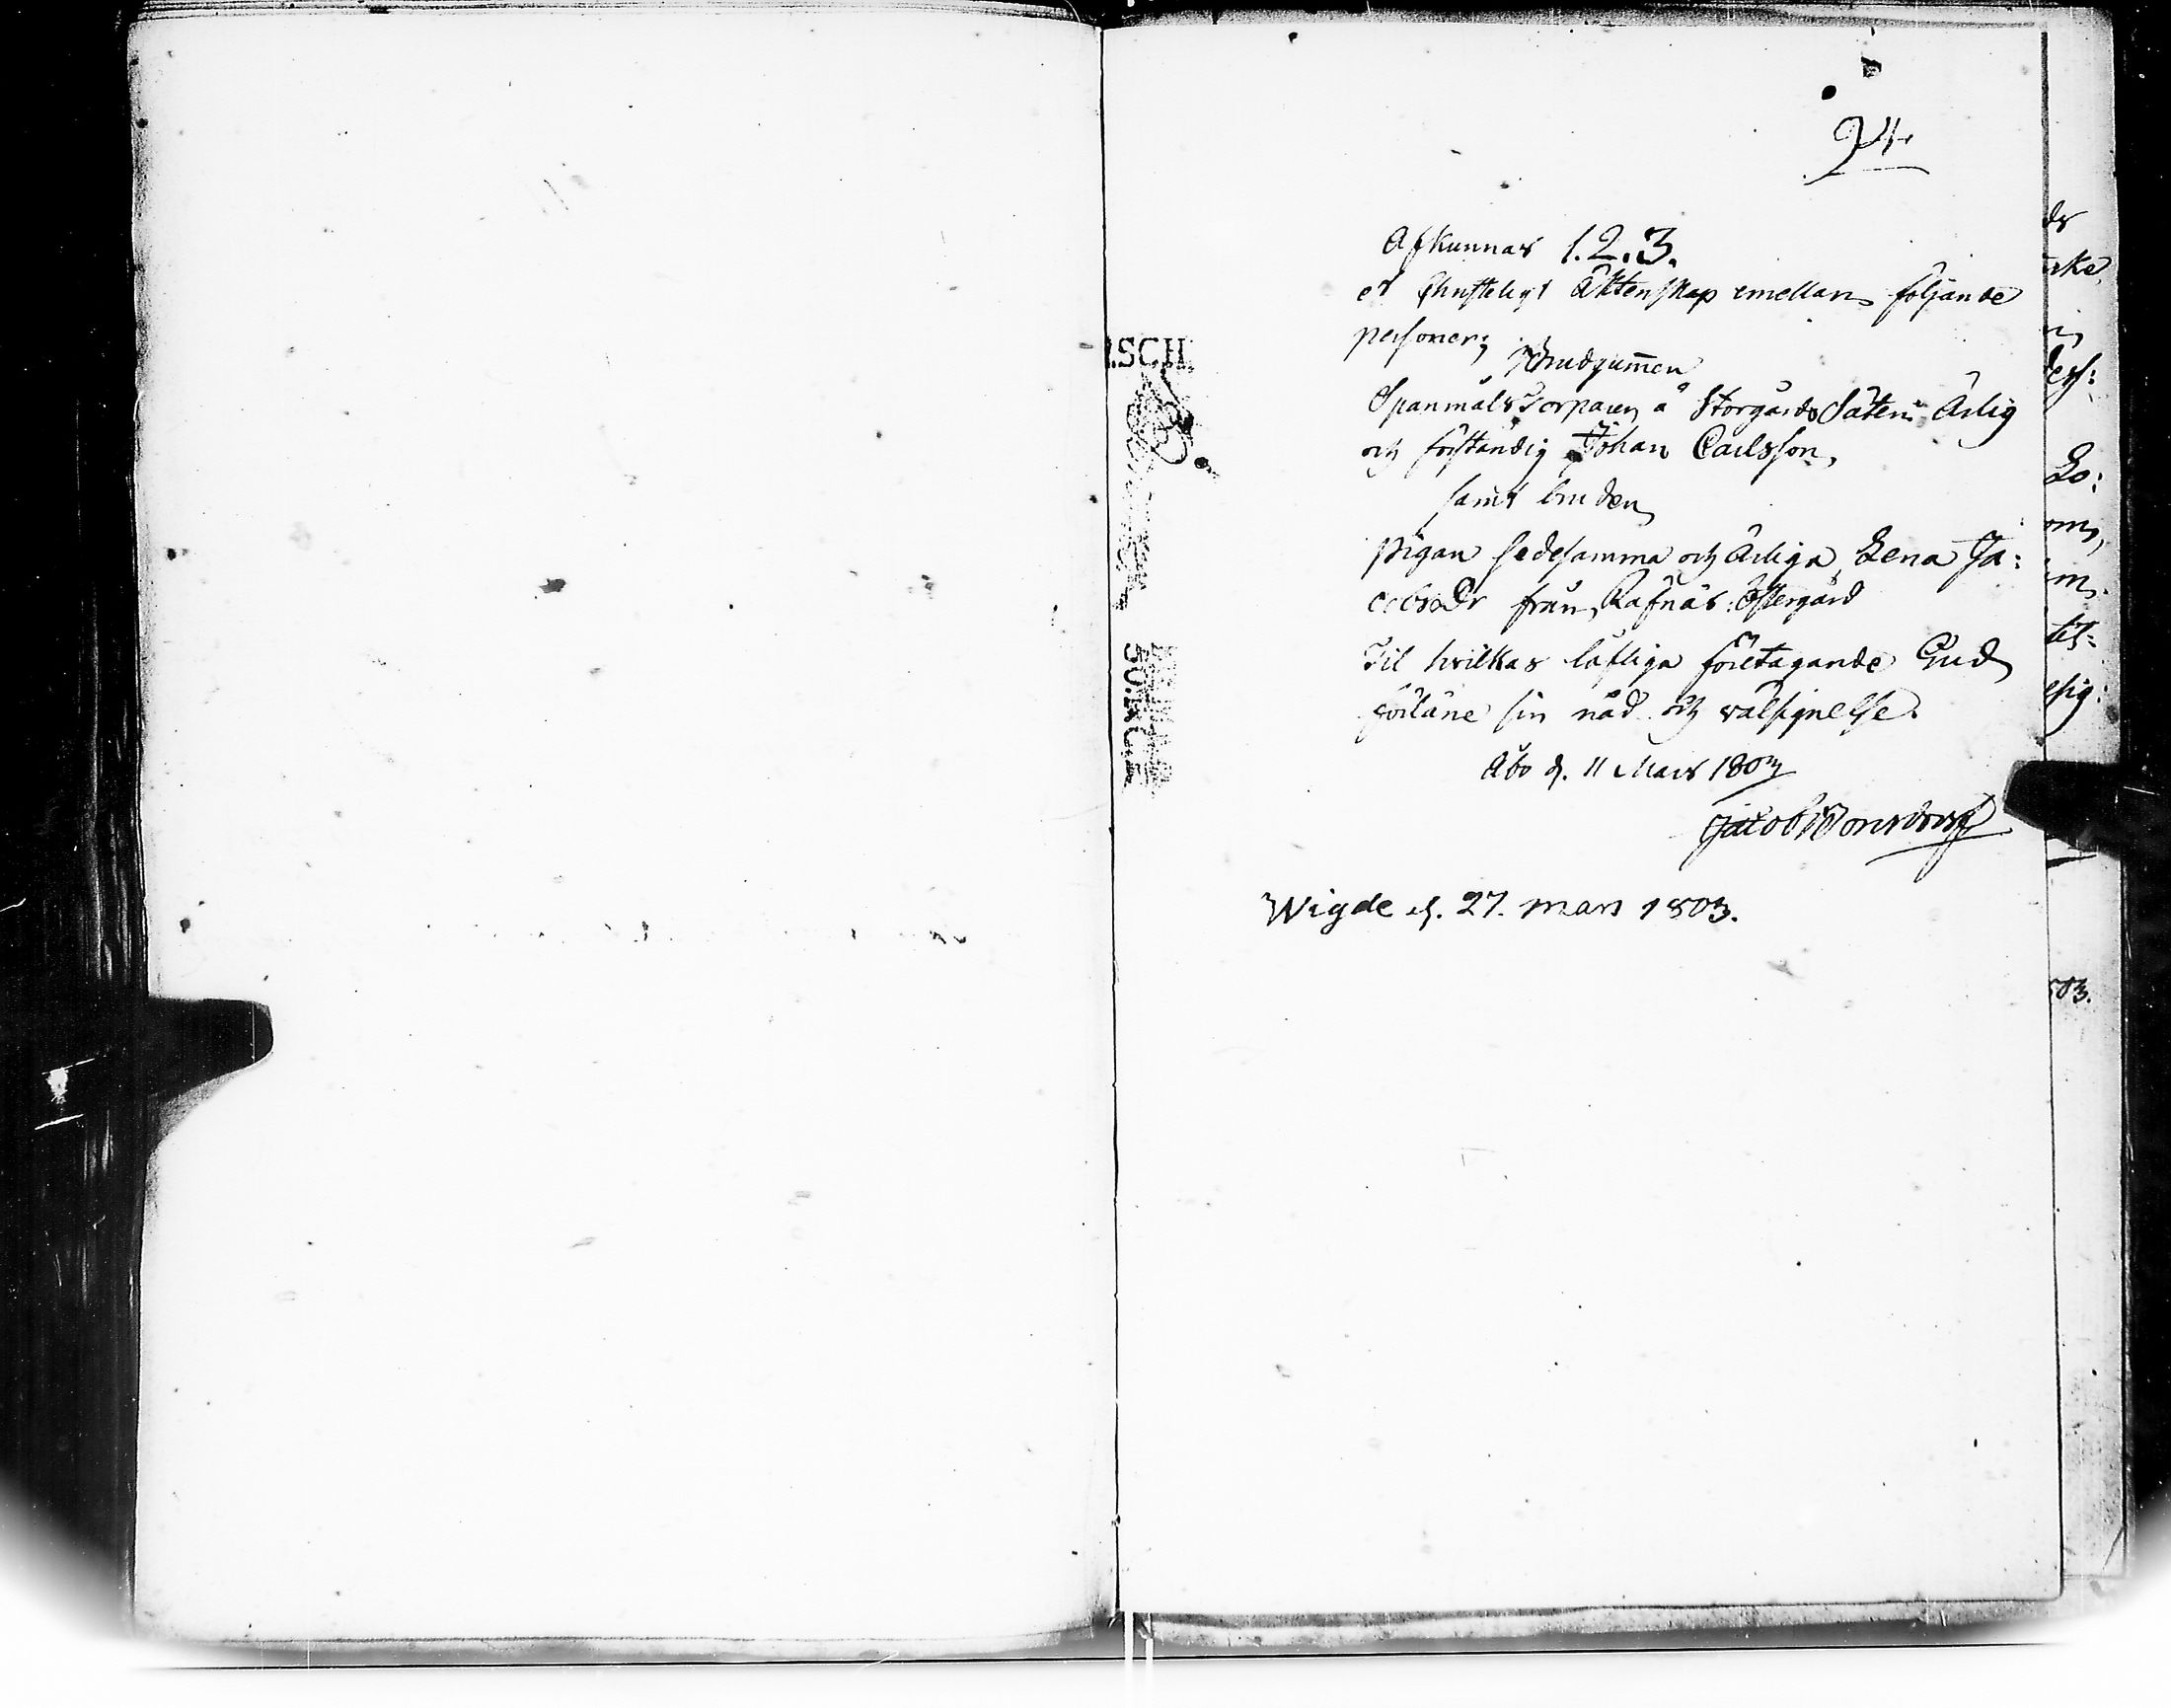 94.
Afkunnas 1.2.3.
et Christeligt Äktenskap emellan följande
personer;
Brudgummen
Spanmåls Torparen å Storgårds Säteri Ärlig
och förståndig Johan Carlsson,
samt bruden
pigan sedesamma och Ärliga Lena Ja:
cobsDr från Rafnäs: Östergård
Til hvilkas lofliga företagande Gud
förläne sin nåd och välsignelse.
Åbo d. 11 Mars 1803
Jacob Bonsdorff
Wigde d. 27. mars 1803.
.SCH
50.K
ds
Lo:
503.